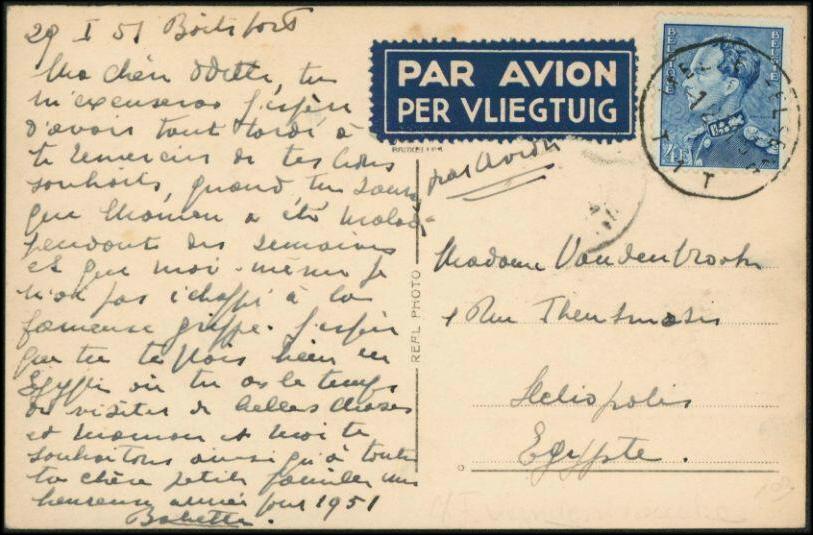 29 I 51 Boitsfort
Ma chère Odette, tu
m'excuseras j'espère
d'avoir tant tardé à
te remercier de tes bons
souhaits, quand tu sauras
que Maman a été malade
pendant des semaines
et que moi-même je
n'ai pas échappé à la
fameuse grippe. J'espère
que tu te plais bien en
Egypte où tu as le temps
de visiter de belles choses
et Maman et moi te
souhaitons ainsi qu'à toute
ta chère petite famille une
heureuse année pour 1951
Babette.
PAR AVION
PER VLIEGTUIG
BELGIE BELGIQUE
BRUXELLES
par avion
REAL PHOTO
Madame Vandenbroek
1 Rue Thoutmosis
Heliopolis
Egypte.